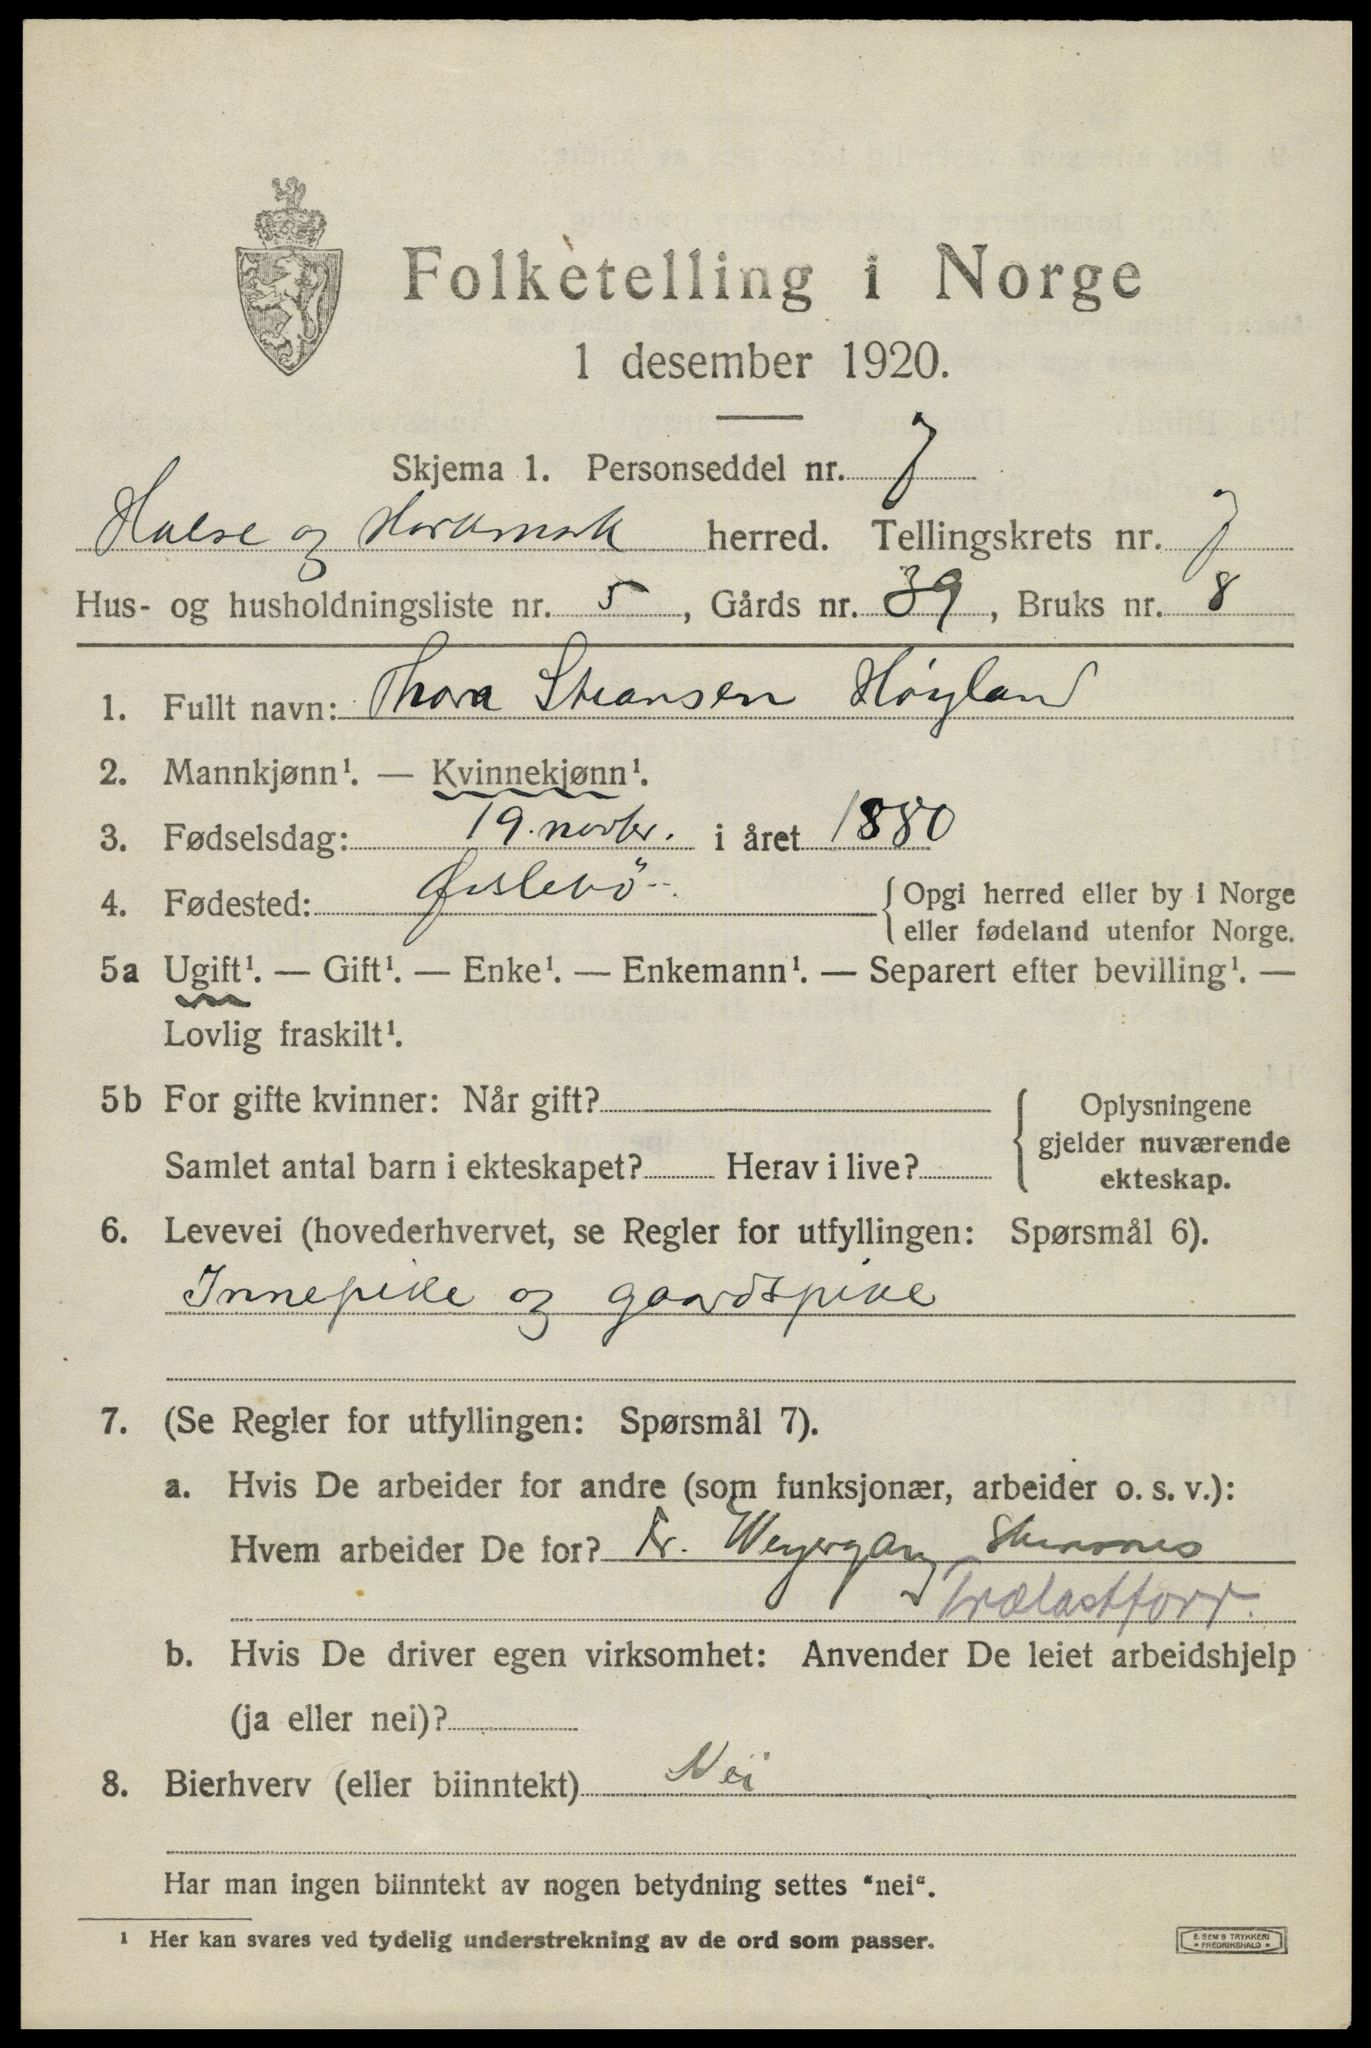 Folketelling i Norge
1 desember 1920.
Skjema 1. Personseddel nr. 7
Halse og Harkmark herred. Tellingskrets nr. 7
Hus- og husholdningsliste nr. 5, Gårds nr. 39, Bruks nr. 8
1. Fullt navn: Thora Høyland
2. Mannkjønn¹. — Kvinnekjønn¹.
3. Fødselsdag: 19. novbr. i året 1880
4. Fødested: Øislebö {Opgi herred eller by i Norge
eller fødeland utenfor Norge.
5a Ugift¹. — Gift¹. — Enke¹. — Enkemann¹. — Separert efter bevilling¹. —
Lovlig fraskilt¹.
5b For gifte kvinner: Når gift? { Oplysningene
gjelder nuværende
Samlet antal barn i ekteskapet? Herav i live?
ekteskap.
6. Levevei (hovederhvervet, se Regler for utfyllingen: Spørsmål 6).
Innepike og gaardspike
7. (Se Regler for utfyllingen: Spørsmål 7).
a. Hvis De arbeider for andre (som funksjonær, arbeider o. s. v.):
Hvem arbeider De for? Fr. Weyergang
Trælastforr.
b. Hvis De driver egen virksomhet: Anvender De leiet arbeidshjelp
(ja eller nei)?
8. Bierhverv (eller biinntekt) Nei
Har man ingen biinntekt av nogen betydning settes "nei".
¹ Her kan svares ved tydelig understrekning av de ord som passer.
E. SEM'S TRYKKERI
* FREDRIKSHALD *